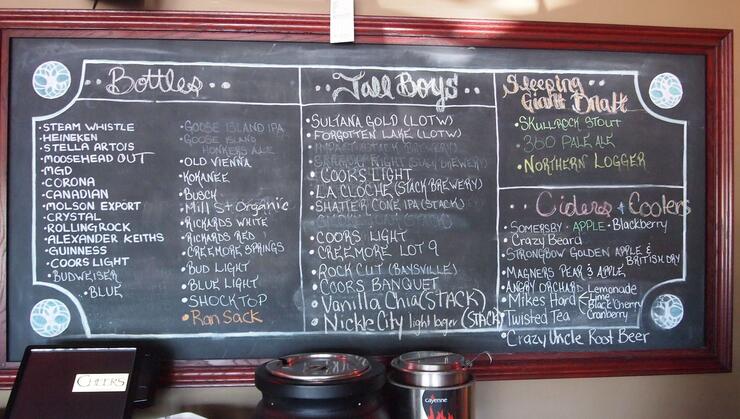 Bottles
• STEAM WHISTLE
• HEINEKEN
• STELLA ARTOIS
• MOOSEHEAD OUT
• MGD
• CORONA
• CANADIAN
• MOLSON EXPORT
• CRYSTAL
• ROLLING ROCK
• ALEXANDER KEITHS
• GUINNESS
• COORS LIGHT
• BUDWEISER
• BLUE
• GOOSE ISLAND IPA
• GOOSE ISLAND
HONKERS ALE
• OLD VIENNA
• KOKANEE
• BUSCH
• Mill St Organic
• RICKARDS WHITE
• RICKARDS RED
• CREEMORE SPRINGS
• BUD LIGHT
• BLUE LIGHT
• SHOCKTOP
• Ran Sack
Tall Boys
• SULTANA GOLD (LOTW)
• FORGOTTEN LAKE (LOTW)
• COORS LIGHT
• LA CLOCHE (STACK BREWERY)
• SHATTER CONE IPA (STACK)
• COORS LIGHT
• CREEMORE LOT 9
• ROCK CUT (BANSVILLE)
• COORS BANQUET
• Vanilla Chia (STACK)
• Nickle City light lager (STACK)
Sleeping
Giant Draft
• SKULLROCK STOUT
• 360 PALE ALE
• NORTHERN LOGGER
Ciders + Coolers
• SOMERSBY • APPLE • Blackberry
• Crazy Beard
• STRONGBOW GOLDEN APPLE &
BRITISH DRY
• MAGNERS PEAR & APPLE
• ANGRY ORCHARD
• Mikes Hard Lemonade
Lime
Black Cherry
Cranberry
• Twisted Tea
• Crazy Uncle Root Beer
CHEERS
cayenne